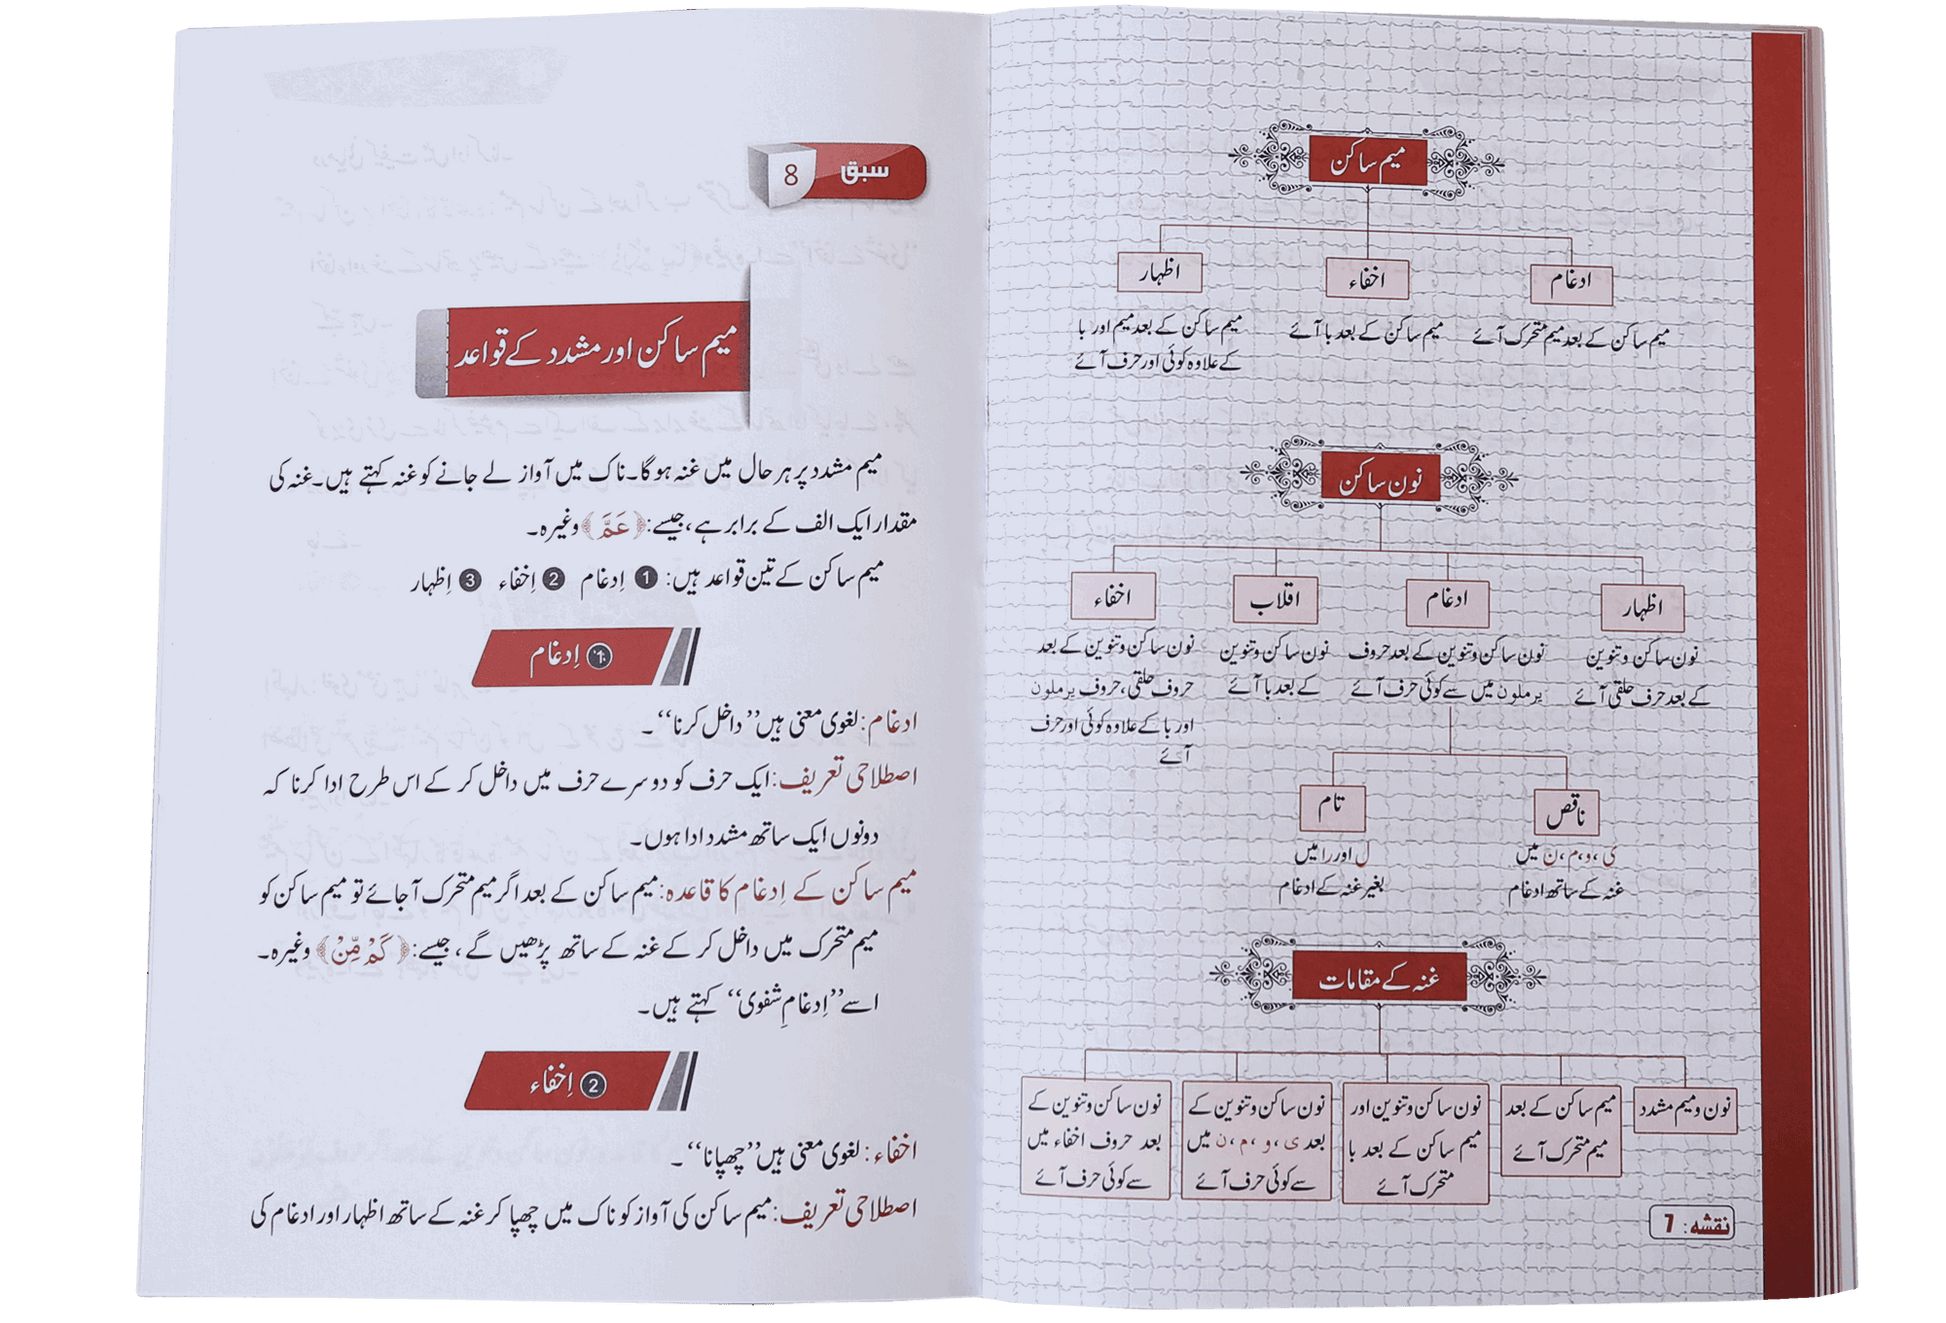 میم ساکن
ادغام
اخفاء
اظہار
میم ساکن کے بعد میم متحرک آئے
میم ساکن کے بعد با آئے
میم ساکن کے بعد میم اور با
کے علاوہ کوئی اور حرف آئے
نون ساکن
اظہار
ادغام
اقلاب
اخفاء
نون ساکن وتنوین
کے بعد حرف حلقی آئے
نون ساکن وتنوین کے بعد حروف
یرملون میں سے کوئی حرف آئے
نون ساکن وتنوین
کے بعد با آئے
نون ساکن وتنوین کے بعد
حروف حلقی، حروف یرملون
اور با کے علاوہ کوئی اور حرف
آئے
ناقص
تام
ی، و، م، ن میں
غنہ کے ساتھ ادغام
ل اور را میں
بغیر غنہ کے ادغام
غنہ کے مقامات
نون ومیم مشدد
میم ساکن کے بعد
میم متحرک آئے
نون ساکن وتنوین اور
میم ساکن کے بعد با
متحرک آئے
نون ساکن وتنوین کے
بعد ی، و، م، ن میں
سے کوئی حرف آئے
نون ساکن وتنوین کے
بعد حروف اخفاء میں
سے کوئی حرف آئے
نقشہ: 7
سبق 8
میم ساکن اور مشدد کے قواعد
میم مشدد پر ہر حال میں غنہ ہوگا۔ ناک میں آواز لے جانے کو غنہ کہتے ہیں۔ غنہ کی
مقدار ایک الف کے برابر ہے، جیسے: ﴿عَمَّ﴾ وغیرہ۔
میم ساکن کے تین قواعد ہیں: 1 اِدغام 2 اِخفاء 3 اِظہار
1 اِدغام
ادغام: لغوی معنی ہیں ”داخل کرنا“۔
اصطلاحی تعریف: ایک حرف کو دوسرے حرف میں داخل کر کے اس طرح ادا کرنا کہ
دونوں ایک ساتھ مشدد ادا ہوں۔
میم ساکن کے اِدغام کا قاعدہ: میم ساکن کے بعد اگر میم متحرک آجائے تو میم ساکن کو
میم متحرک میں داخل کر کے غنہ کے ساتھ پڑھیں گے، جیسے: ﴿كَمْ مِّنْ﴾ وغیرہ۔
اسے ”اِدغامِ شفوی“ کہتے ہیں۔
2 اِخفاء
اخفاء: لغوی معنی ہیں ”چھپانا“۔
اصطلاحی تعریف: میم ساکن کی آواز کو ناک میں چھپا کر غنہ کے ساتھ اظہار اور ادغام کی